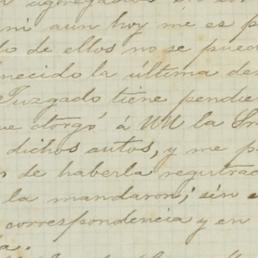 ni aun hoy me es p
de ellos no se pued
necido la última de
Juzgado tiene pendie
ue otorgó á NN la Sr
dichos autos, y me p
s de haberla registrad
la mandaron; sin e
correspondencia y en